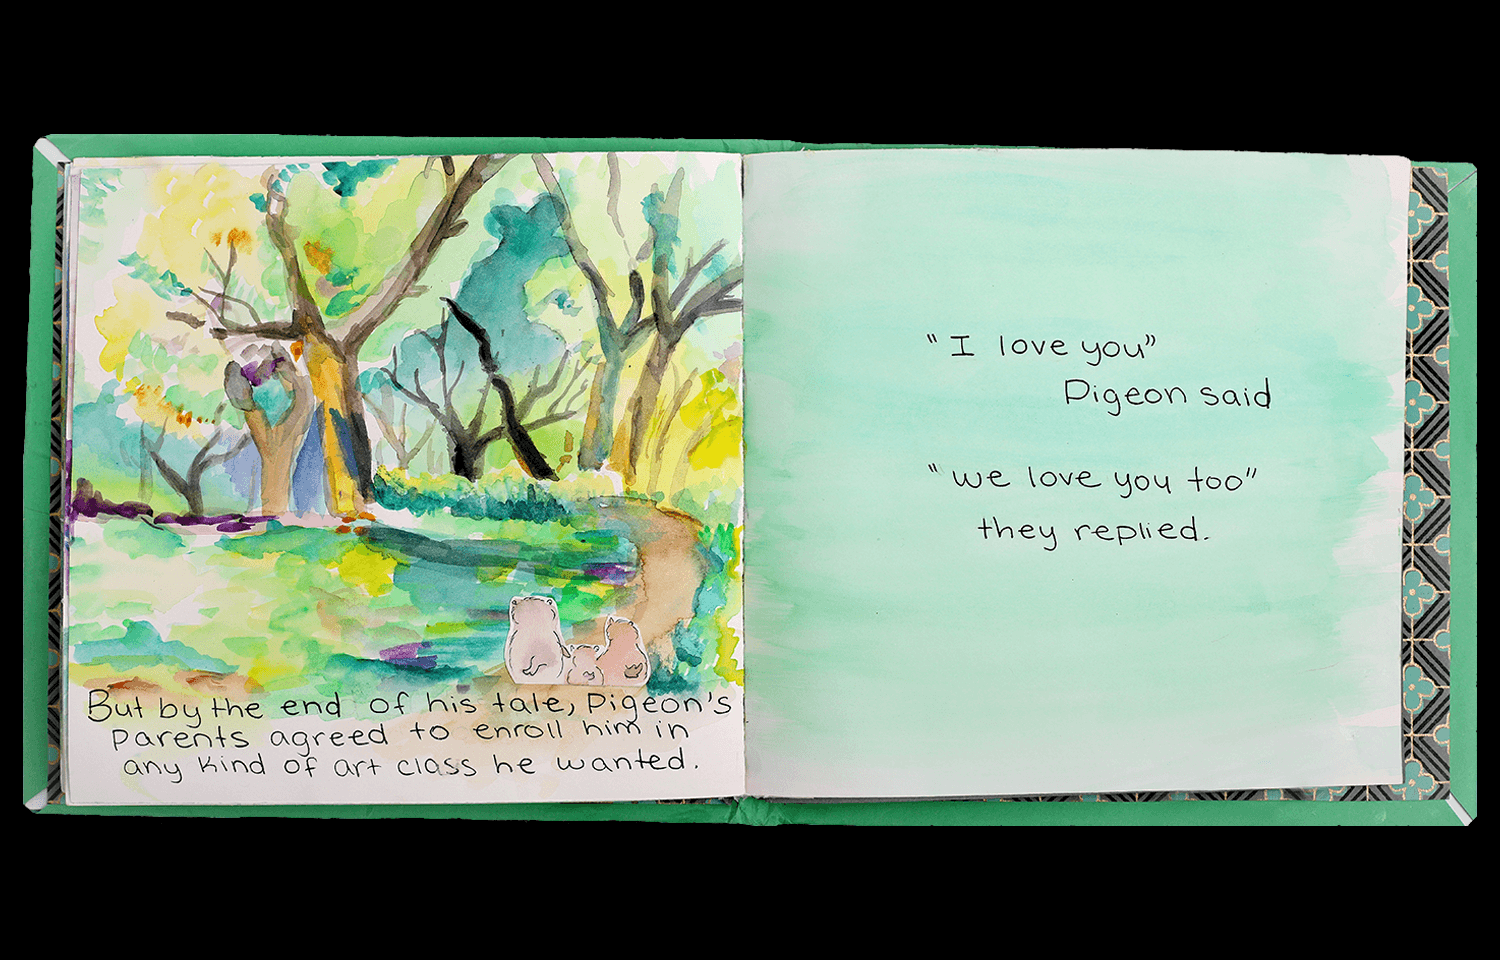 But by the end of his tale, Pigeon's
Parents agreed to enroll him in
any kind of art class he wanted.
"I love you"
Pigeon said
"we love you too"
they replied.